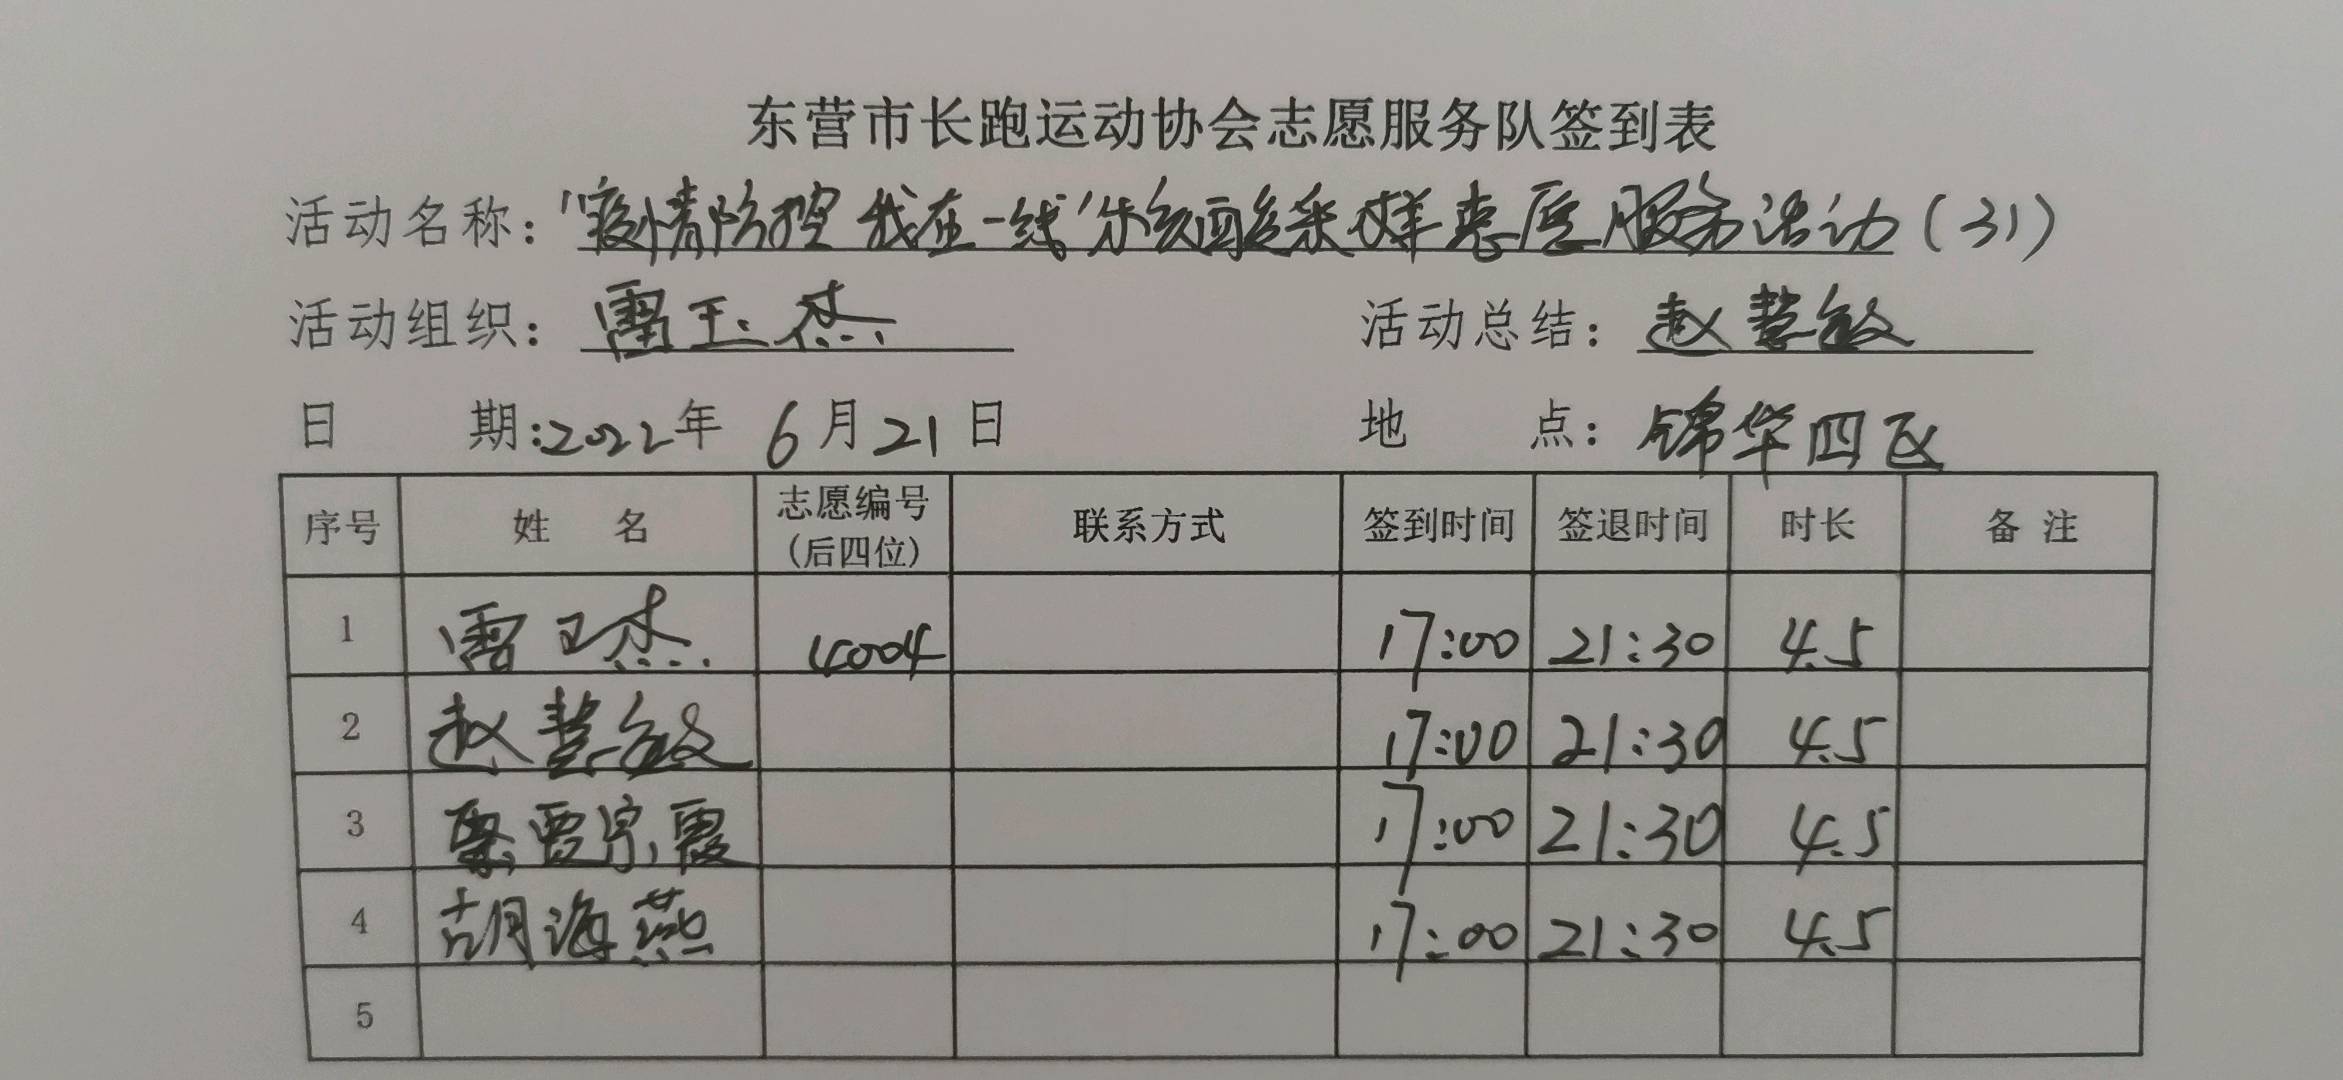 东营市长跑运动协会志愿服务队签到表
活动名称："疫情防控 我在一线"核酸采样志愿服务活动（31）
活动组织：雷玉杰 活动总结：赵慧敏
日 期：2022年 6月21日 地 点：锦华四区
序号 姓 名 志愿编号（后四位） 联系方式 签到时间 签退时间 时长 备 注
1 雷玉杰 4004 17:00 21:30 4.5
2 赵慧敏 17:00 21:30 4.5
3 霞 17:00 21:30 4.5
4 胡海燕 17:00 21:30 4.5
5